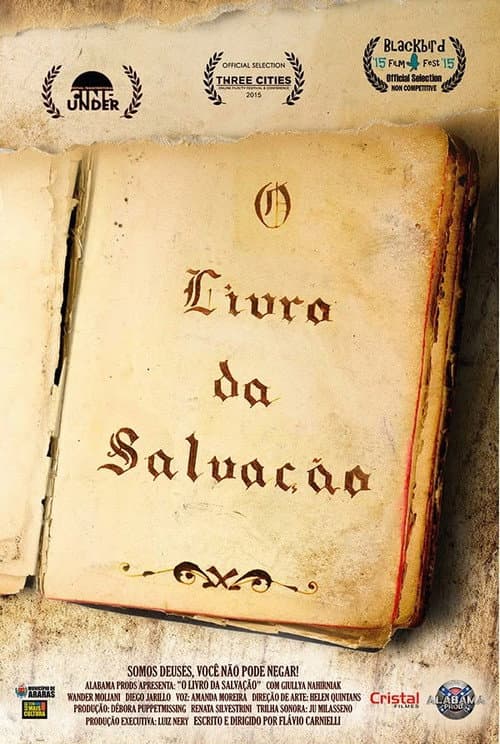 CINE
UNDER
OFFICIAL SELECTION
THREE CITIES
ONLINE FILM/TV FESTIVAL & CONFERENCE
2015
BLACKBIRD
'15 FILM FEST '15
Official Selection
NON COMPETITIVE
O
Livro
da
Salvação
SOMOS DEUSES, VOCÊ NÃO PODE NEGAR!
ALABAMA PRODS APRESENTA: "O LIVRO DA SALVAÇÃO" COM GIULLYA NAHIRNIAK
WANDER MOLIANI DIEGO JARILLO VOZ: AMANDA MOREIRA DIREÇÃO DE ARTE: HELEN QUINTANS
PRODUÇÃO: DÉBORA PUPPETMISSING RENATA SILVESTRINI TRILHA SONORA: JU MILASSENO
PRODUÇÃO EXECUTIVA: LUIZ NERY ESCRITO E DIRIGIDO POR FLÁVIO CARNIELLI
MUNICÍPIO DE
ARARAS
MAIS
CULTURA
Cristal
FILMES
ALABAMA
PRODS